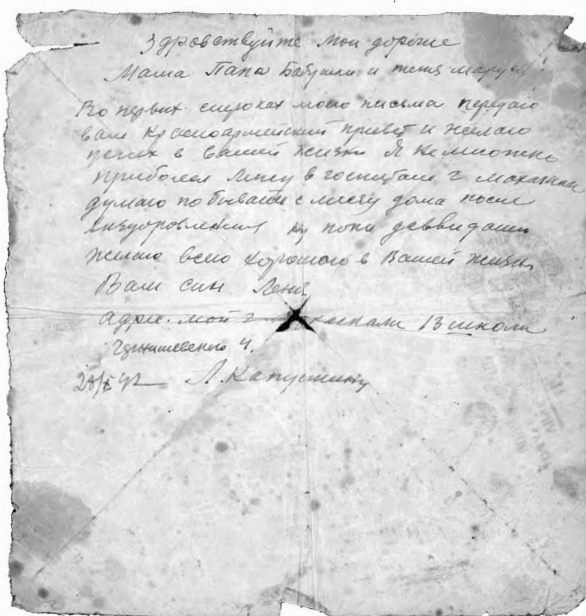 Здравствуйте мои дорогие
Мама Папа Бабушка и тетя Маруся!
Во первых строках моего письма передаю
вам Красноармейский привет и желаю
в вашей жизни Я немножко
приболел лежу в госпитале г
думаю побывать к месту дома после
ну пока досвидания
желаю всего хорошего в Вашей жизни
Ваш сын Леня
адрес мой г школа
Чернышевского 4.
Л. Капустину